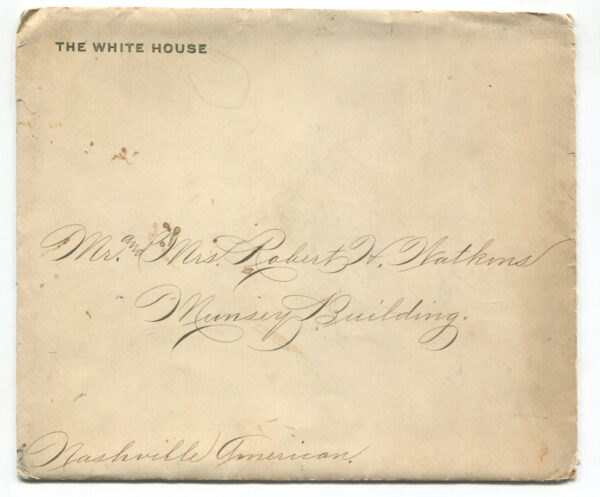 THE WHITE HOUSE
Mr. and Mrs. Robert H. Watkins
Munsey Building.
Nashville American.